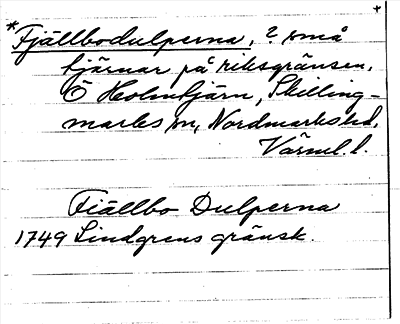 *Fjällbodulperna, 2 små
tjärnar på riksgränsen,
Ö Holmtjärn, Skilling-
marks sn, Nordmarks hd,
Värml. l.
Fiällbo Dulperna
1749 Lindgrens gränsk.